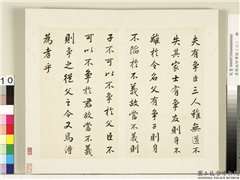 夫有爭臣三人雖無道不
失其家士有爭友則身不
離於令名父有爭子則身
不陷於不義故當不義則
子不可以不爭於父臣不
可以不爭於君故當不義
則爭之從父之令又焉得
為孝乎